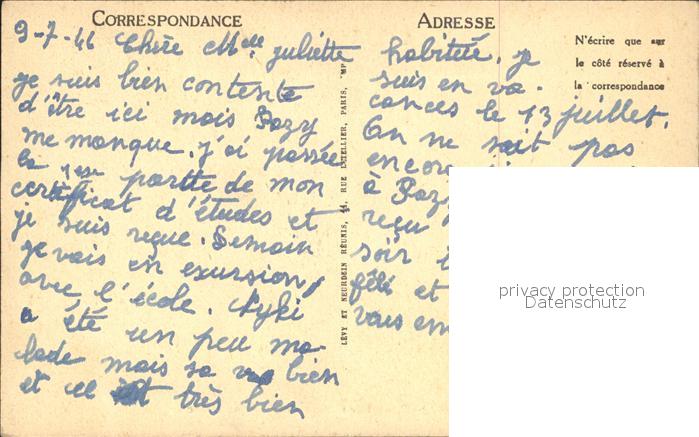 CORRESPONDANCE
9-7-46 Chère Melle juliette
je suis bien contente
d'être ici mais Pozy
me manque. j'ai passée
la 1ere partte de mon
certificat d'études et
je suis reçue. Demain
je vais en exursion
avec l'école. Nyki
a été un peu ma-
lade mais sa va bien
et il est très bien
ADRESSE
habitué. je
suis en va-
cances le 13 juillet.
On ne sait pas
encore
à Pozy
reçu
soir
fêlé et
vous em
N'écrire que sur
le côté réservé à
la correspondance
LÉVY ET NEURDEIN RÉUNIS, 44, RUE LETELLIER, PARIS, IMP
privacy protection
Datenschutz